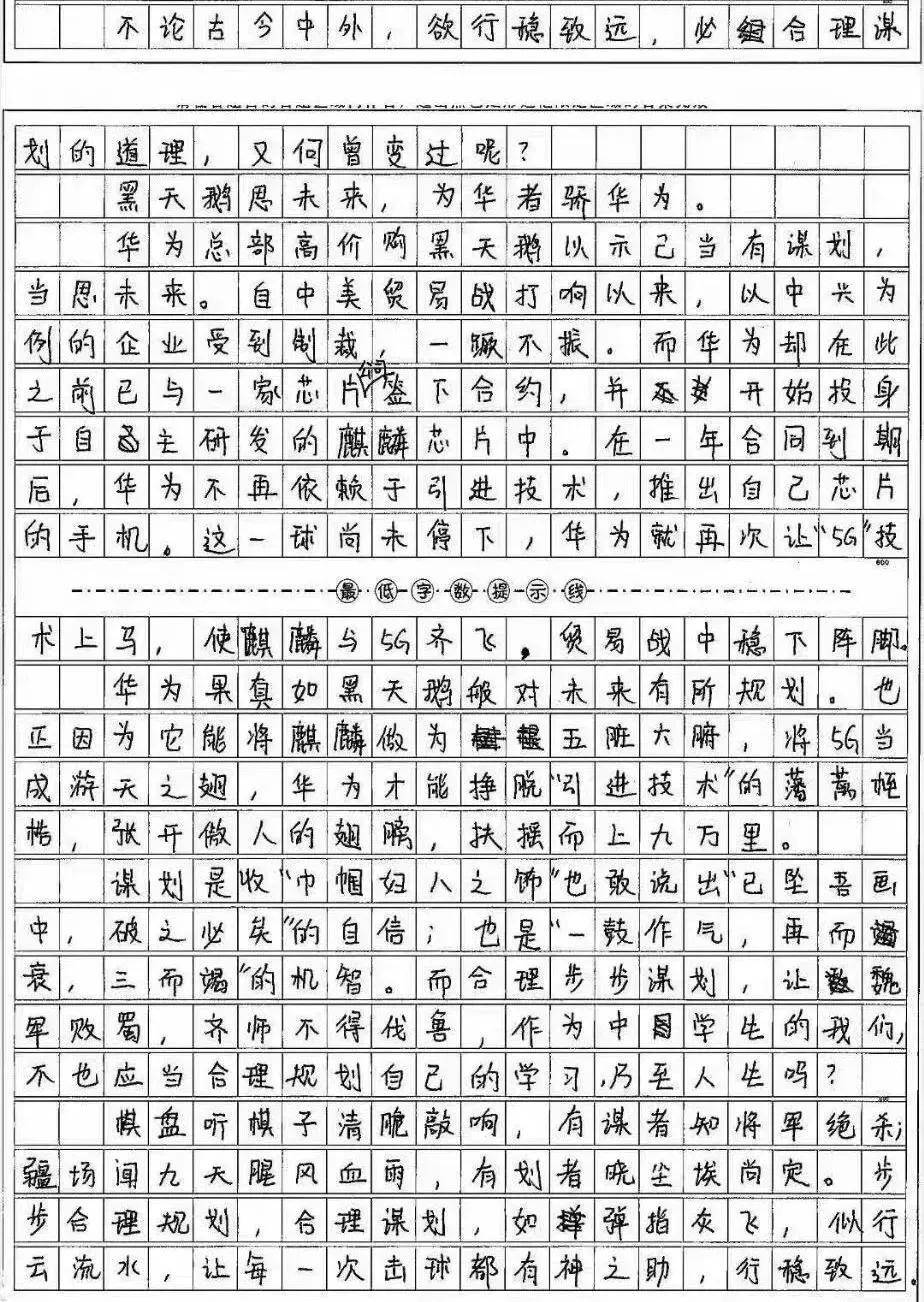 不论古今中外，欲行稳致远，必组合理谋
划的道理，又何曾变过呢？
黑天鹅思未来，为华者骄华为。
华为总部高价购黑天鹅以示己当有谋划，
当思未来。自中美贸易战打响以来，以中兴为
例的企业受到制裁，一蹶不振。而华为却在此
之前已与一家芯片公司签下合约，并开始投身
于自主研发的麒麟芯片中。在一年合同到期
后，华为不再依赖于引进技术，推出自己芯片
的手机。这一球尚未停下，华为就再次让“5G”技
600
最低字数提示线
术上马，使麒麟与5G齐飞，贸易战中稳下阵脚。
华为果真如黑天鹅般对未来有所规划。也
正因为它能将麒麟做为五脏六腑，将5G当
成游天之翅，华为才能挣脱“引进技术”的藩篱桎
梏，张开傲人的翅膀，扶摇而上九万里。
谋划是收“巾帼妇人之饰”也敢说出“已坠吾画
中，破之必矣”的自信；也是“一鼓作气，再而
衰，三而竭”的机智。而合理步步谋划，让魏
军败蜀，齐师不得伐鲁，作为中学生的我们，
不也应当合理规划自己的学习，乃至人生吗？
棋盘听棋子清脆敲响，有谋者知将军绝杀；
疆场闻九天腥风血雨，有划者晓尘埃尚定。步
步合理规划，合理谋划，如弹指灰飞，似行
云流水，让每一次击球都有神之助，行稳致远。